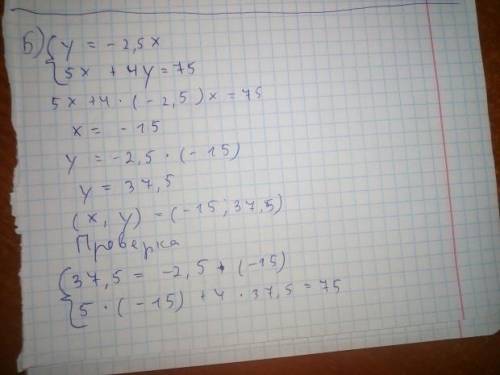 Б) { y = -2,5x
5x + 4y = 75
5x + 4 · (-2,5)x = 75
x = -15
y = -2,5 · (-15)
y = 37,5
(x, y) = (-15; 37,5)
Проверка
{ 37,5 = -2,5 · (-15)
5 · (-15) + 4 · 37,5 = 75